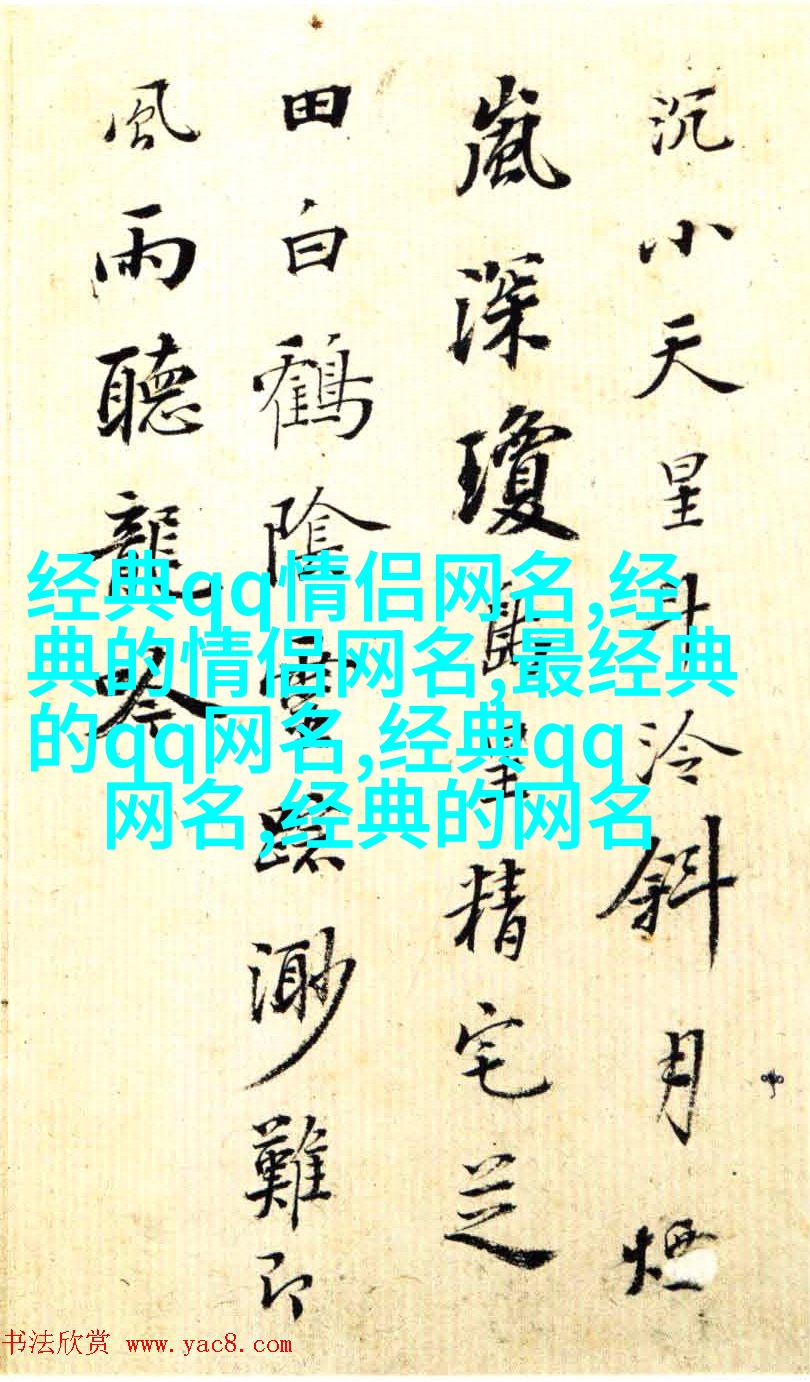 沉小天星斗泠斜月煙
嵐深瓊島精宅芝
田白鶴陰雲蹤渺難即
風雨聽龍吟
经典qq情侣网名,经
典的情侣网名,最经典
的qq网名,经典qq
网名,经典的网名
书法欣赏 www.yac8.com